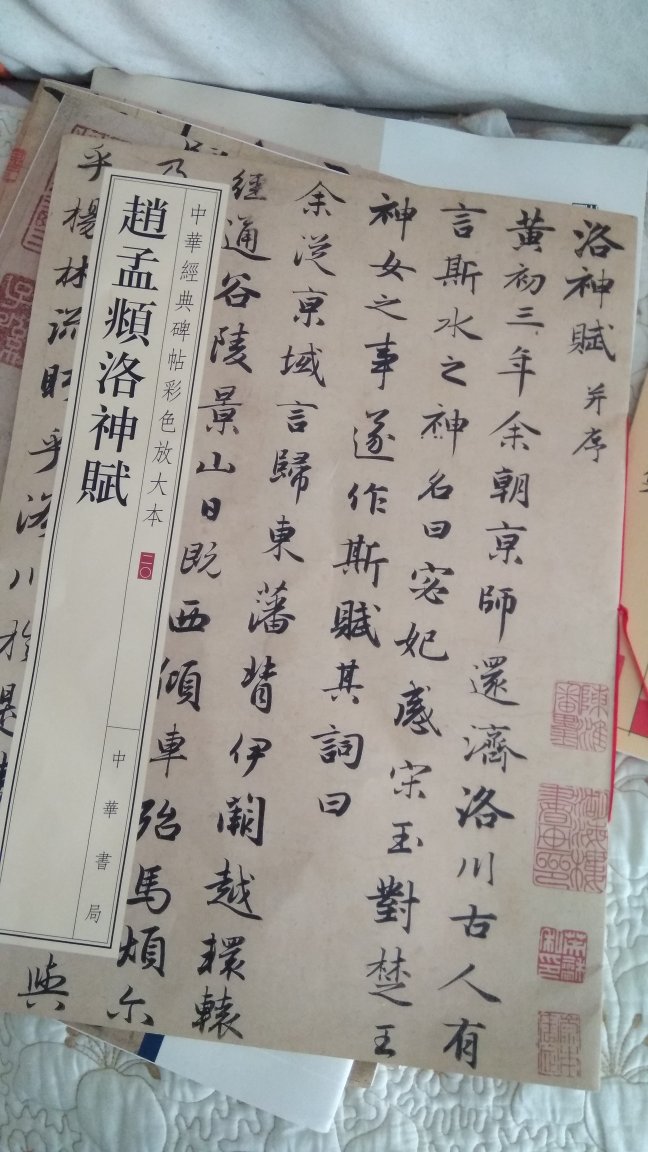 洛神賦 并序
黃初三年余朝京師還濟洛川古人有
言斯水之神名曰宓妃感宋玉對楚王
神女之事遂作斯賦其詞曰
余從京域言歸東藩背伊闕越轘轅
經通谷陵景山日既西傾車殆馬煩尔
與
乎楊林流眄乎洛川於是
中華經典碑帖彩色放大本 二〇
趙孟頫洛神賦
中華書局